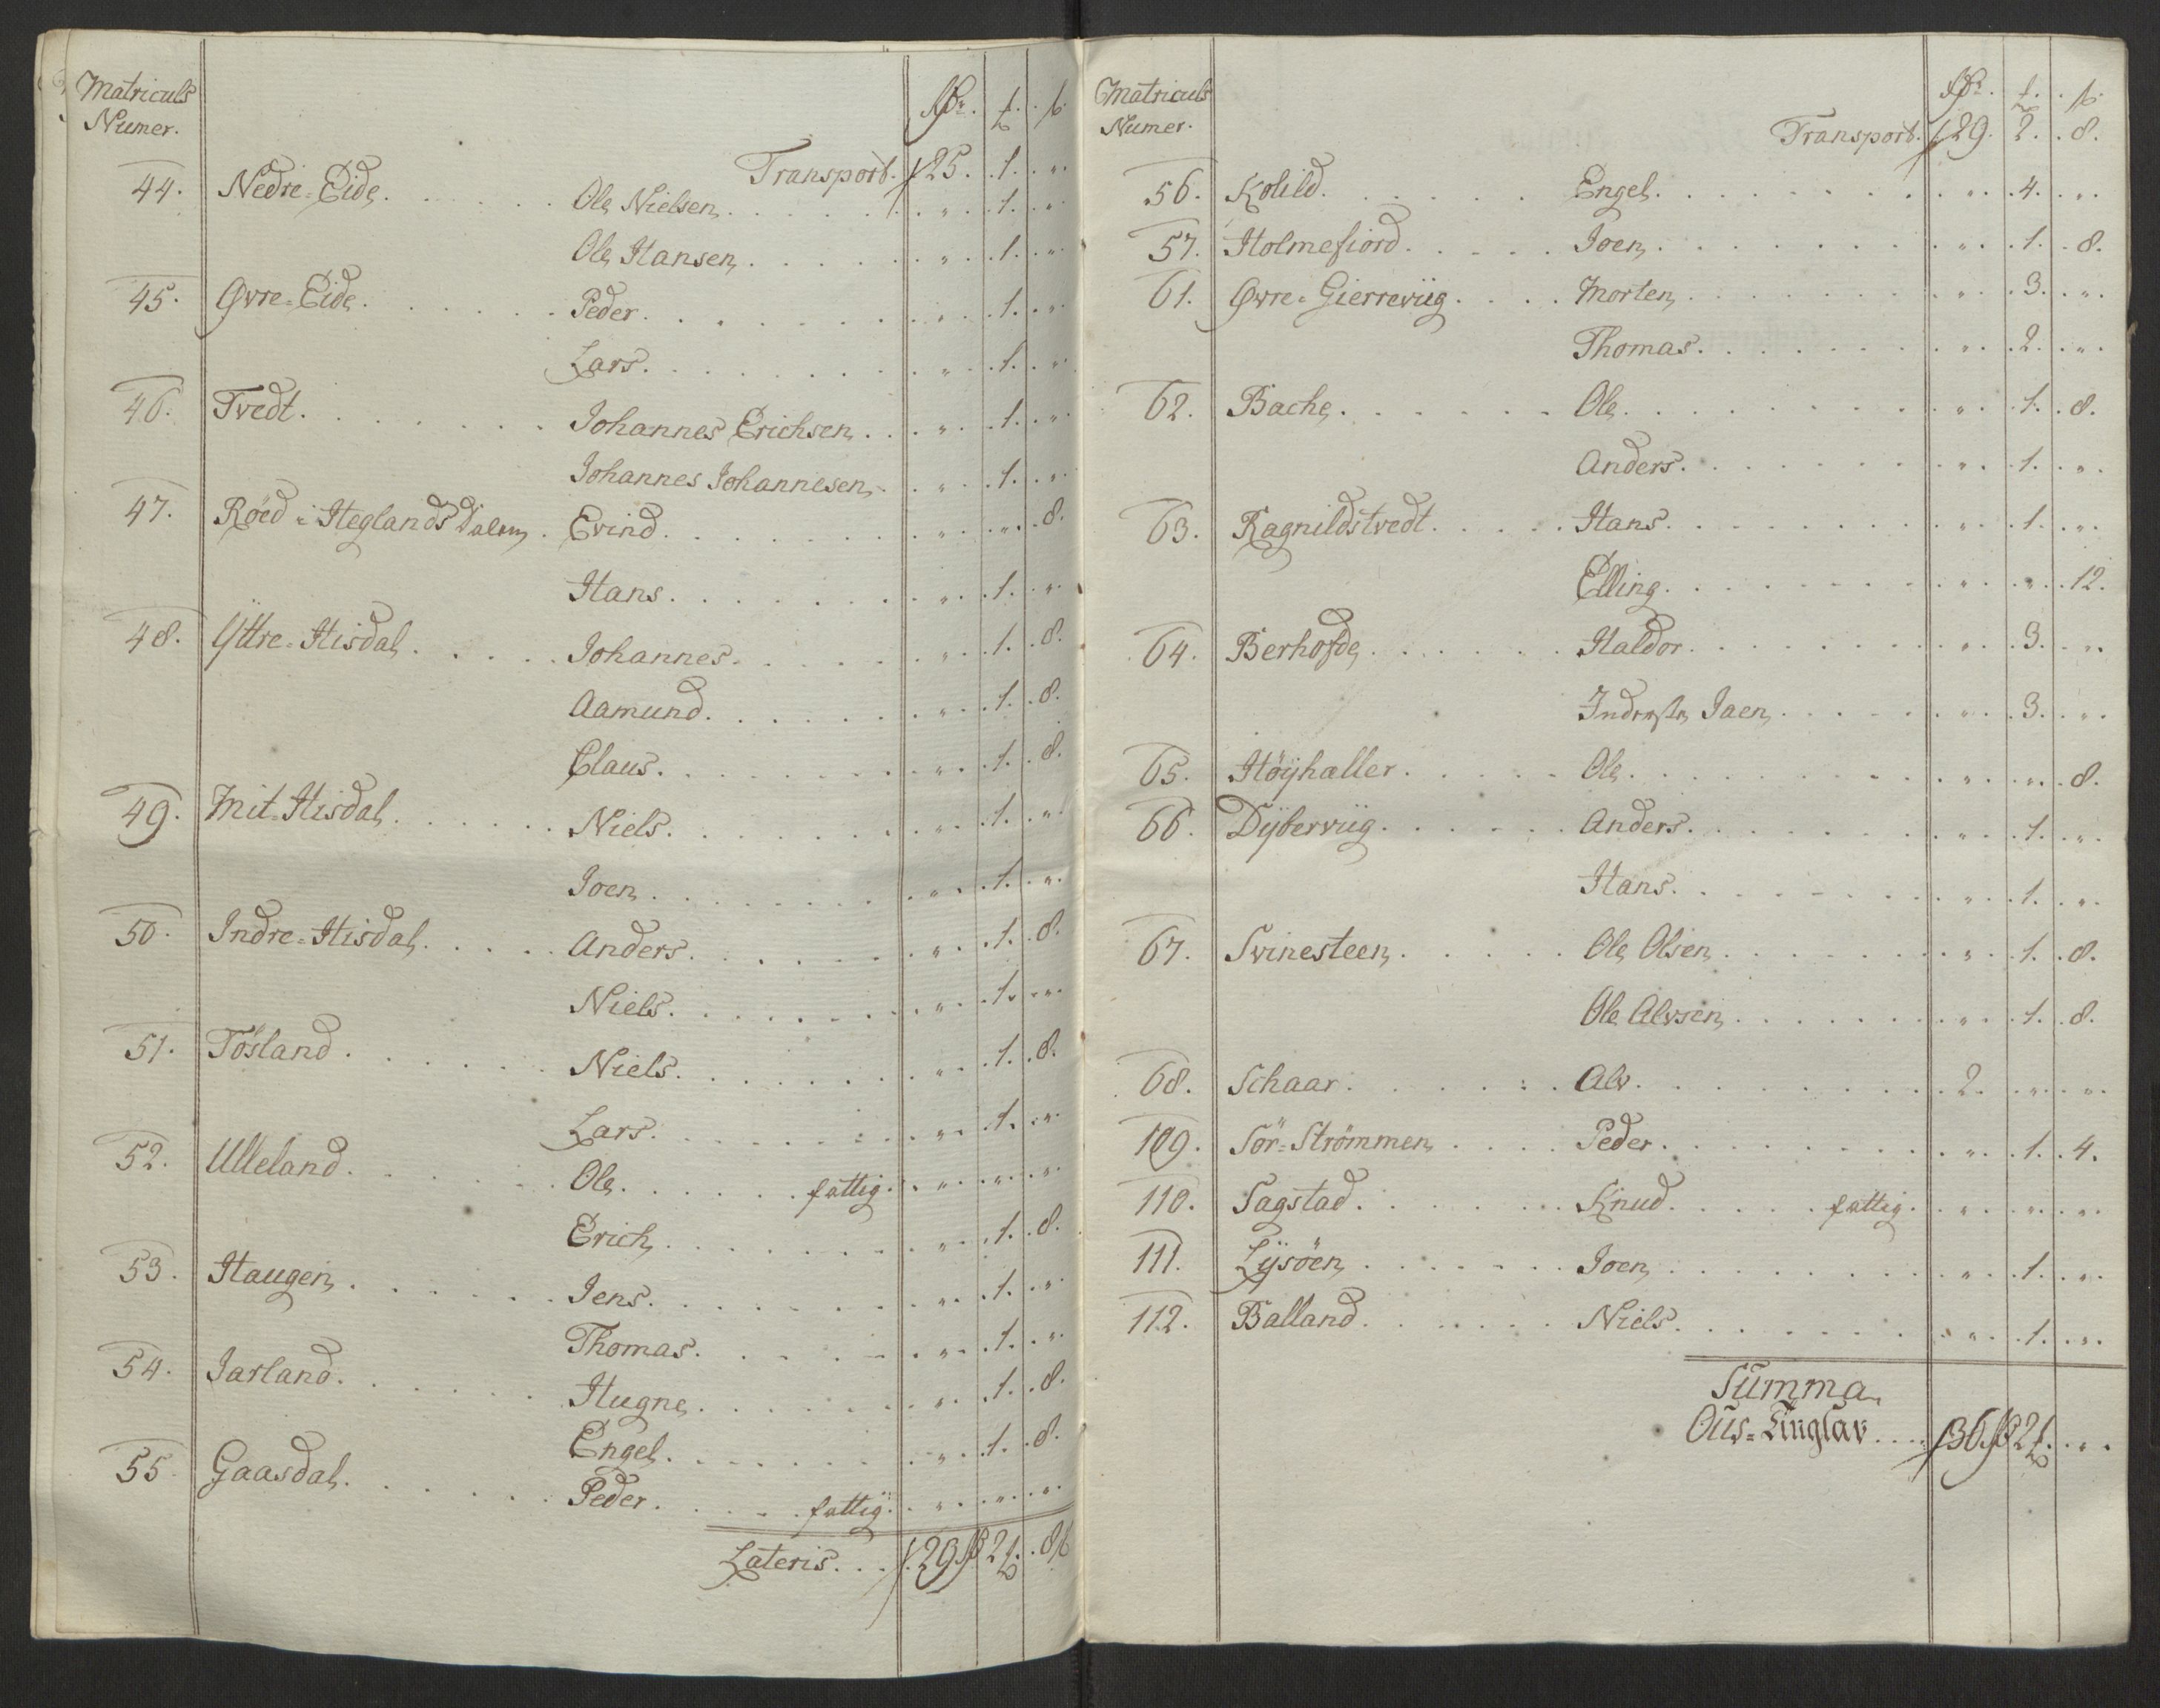 Matriculs
Numer.
Rdr. . ß.
Transport. 125. .1. . "
44. Nedre-Eide . . . . . Ole Nielsen . . . . . " . .1. . "
Ole Hansen . . . . . " . .1. . "
45. Øvre-Eide . . . . . Peder . . . . . " . .1. . "
Lars . . . . . " . .1. . "
46. Tvedt . . . . . Johannes Erichsen . . . " . .1. . "
Johannes Johannesen . . " . .1. . "
47. Røed i Heglands Dalen . Evind . . . . . " . " . .8.
Hans . . . . . " . .1. . "
48. Ÿttre-Hisdal . . . . Johannes . . . . . " . .1. .8.
Aamund . . . . . " . .1. .8.
Claus . . . . . " . .1. .8.
49. Mit-Hisdal . . . . . Niels . . . . . " . .1. . "
Joen . . . . . " . .1. . "
50. Indre-Hisdal . . . . Anders . . . . . " . .1. .8.
Niels . . . . . " . .1. . "
51. Tösland . . . . . Niels . . . . . " . .1. .8.
Lars . . . . . " . .1. . "
52. Ulleland . . . . . Ole . . . . . fattig . " . " . "
Erich . . . . . " . .1. .8.
53. Haugen . . . . . Jens . . . . . " . .1. . "
Thomas . . . . . " . .1. . "
54. Jarland . . . . . Hugne . . . . . " . .1. .8.
Engel . . . . . " . .1. .8.
55. Gaasdal . . . . . Peder . . . . . fattig . " . " . "
Lateris . . . 129 2 .8ß
Matriculs
Numer.
Rdr. . ß.
Transport. 129. 2. .8.
56. Kolild . . . . . Engel . . . . . " . .4. . "
57. Holmefiord . . . . . Joen . . . . . " . .1. .8.
61. Øvre-Gierreviig . . . . Morten . . . . . " . .3. . "
Thomas . . . . . " . .2. . "
62. Bache . . . . . Ole . . . . . " . .1. .8.
Anders . . . . . " . .1. . "
63. Ragnildstvedt . . . . . Hans . . . . . " . .1. . "
Elling . . . . . " . " . .12.
64. Berhofde . . . . . Haldor . . . . . " . .3. . "
Inderste Jaen . . . . . " . .3. . "
65. Höÿhæller . . . . . Ole . . . . . " . " . .8.
66. Dÿberviig . . . . . Anders . . . . . " . .1. . "
Hans . . . . . " . .1. . "
67. Svinesteen . . . . . Ole Olsen . . . . . " . .1. .8.
Ole Alvsen . . . . . " . .1. .8.
68. Schaar . . . . . Alv . . . . . 2. . " . "
109. Sör-Strömmen . . . . Peder . . . . . " . .1. .4.
110. Sagstad . . . . . Knud . . . . . fattig . " . " . "
111. Lÿsöen . . . . . Joen . . . . . " . .1. . "
112. Balland . . . . . Niels . . . . . " . .1. . "
Summa
Ous-Tinglav . . . . 136 2 . "